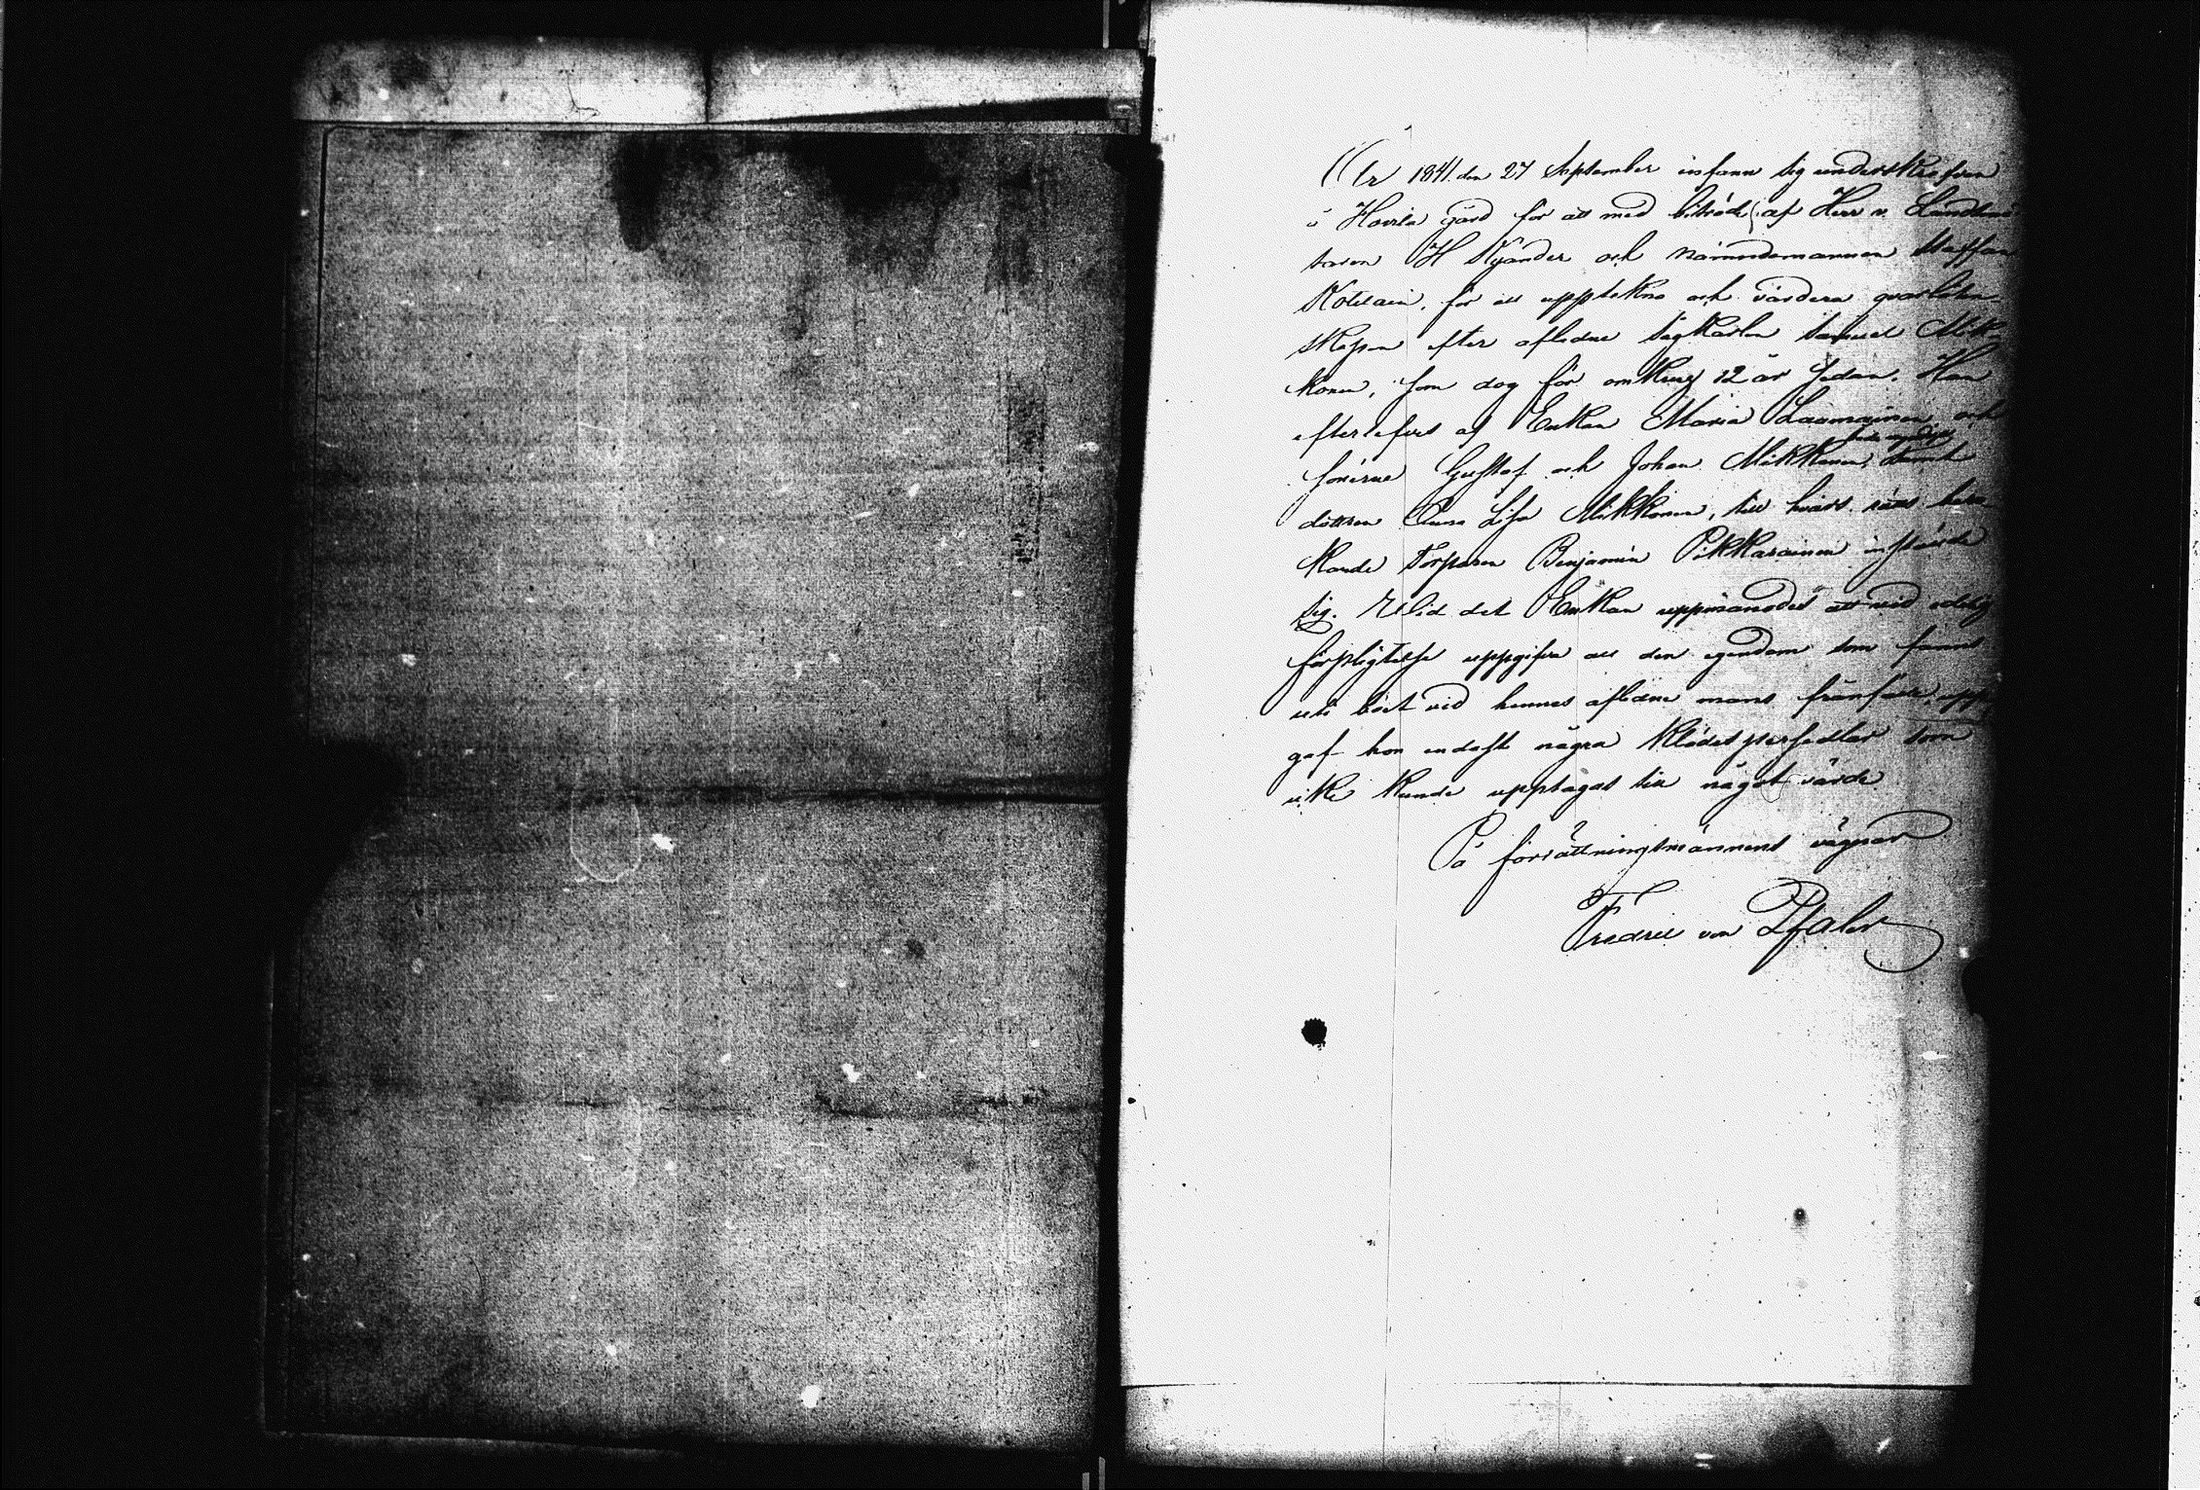 År 1841 den 27 September infann sig undertskrefven
å Hovila gård för att med biträde af Herr v. Landtmä
taren H Kyander och nämndemannen Staffan
Kotilain, för att upptekna och värdera qvarlåten-
skapen efter aflidne Sågkarlen Samuel Mik-
konen, som dog för omkring 12 år sedan. Han
efterlefves af Enkan Maria Laamainen och
sönerne Gustaf och Johan Mikkonen, samt
dottren Anna Lisa Mikkonen, till hvars rätt beva-
kande Torparen Benjamin Pikkarainen instälde
sig. Vid det Enkan uppmanades att vid edelig
förpligtelse uppgifva all den egendom som fanns
uti boet vid hennes aflidne mans frånfälle, upp
gaf hon endast några klädespersedlar som
icke kunde upptagas till något värde.
På förrättningsmännens vägnar
Fredric von Pfaler